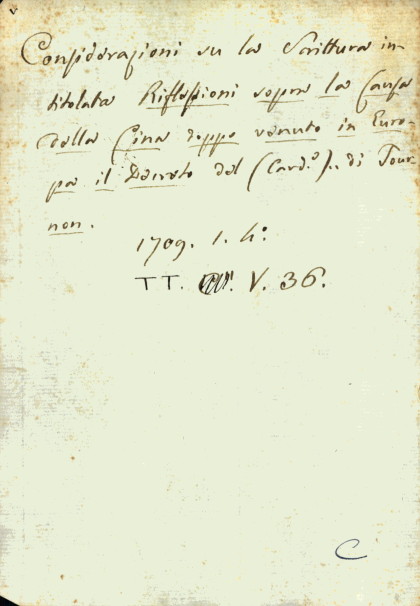 Considerazioni su la Scrittura in-
titolata Riflessioni sopra la Causa
della Cina doppo venuto in Euro-
pa il Decreto del (Card.e).. di Tour-
non.
1709. 1. 4.o
TT. V. 36.
C